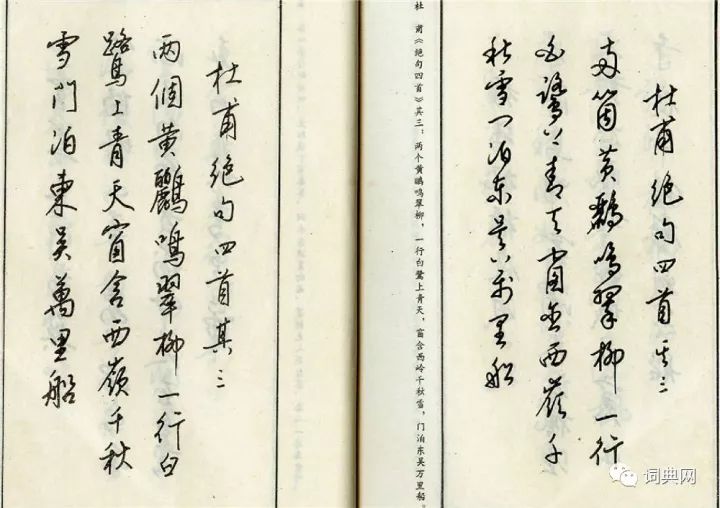 杜甫絶句四首其三
两箇黄鸝鳴翠柳一行
白鷺上青天窗含西嶺千
秋雪門泊東吴萬里船
杜 甫《绝句四首》其三:两个黄鹂鸣翠柳,一行白鹭上青天,窗含西岭千秋雪,门泊东吴万里船。
杜甫絶句四首其三
两個黄鸝鳴翠柳一行白
鷺上青天窗含西嶺千秋
雪門泊東吴萬里船
词典网